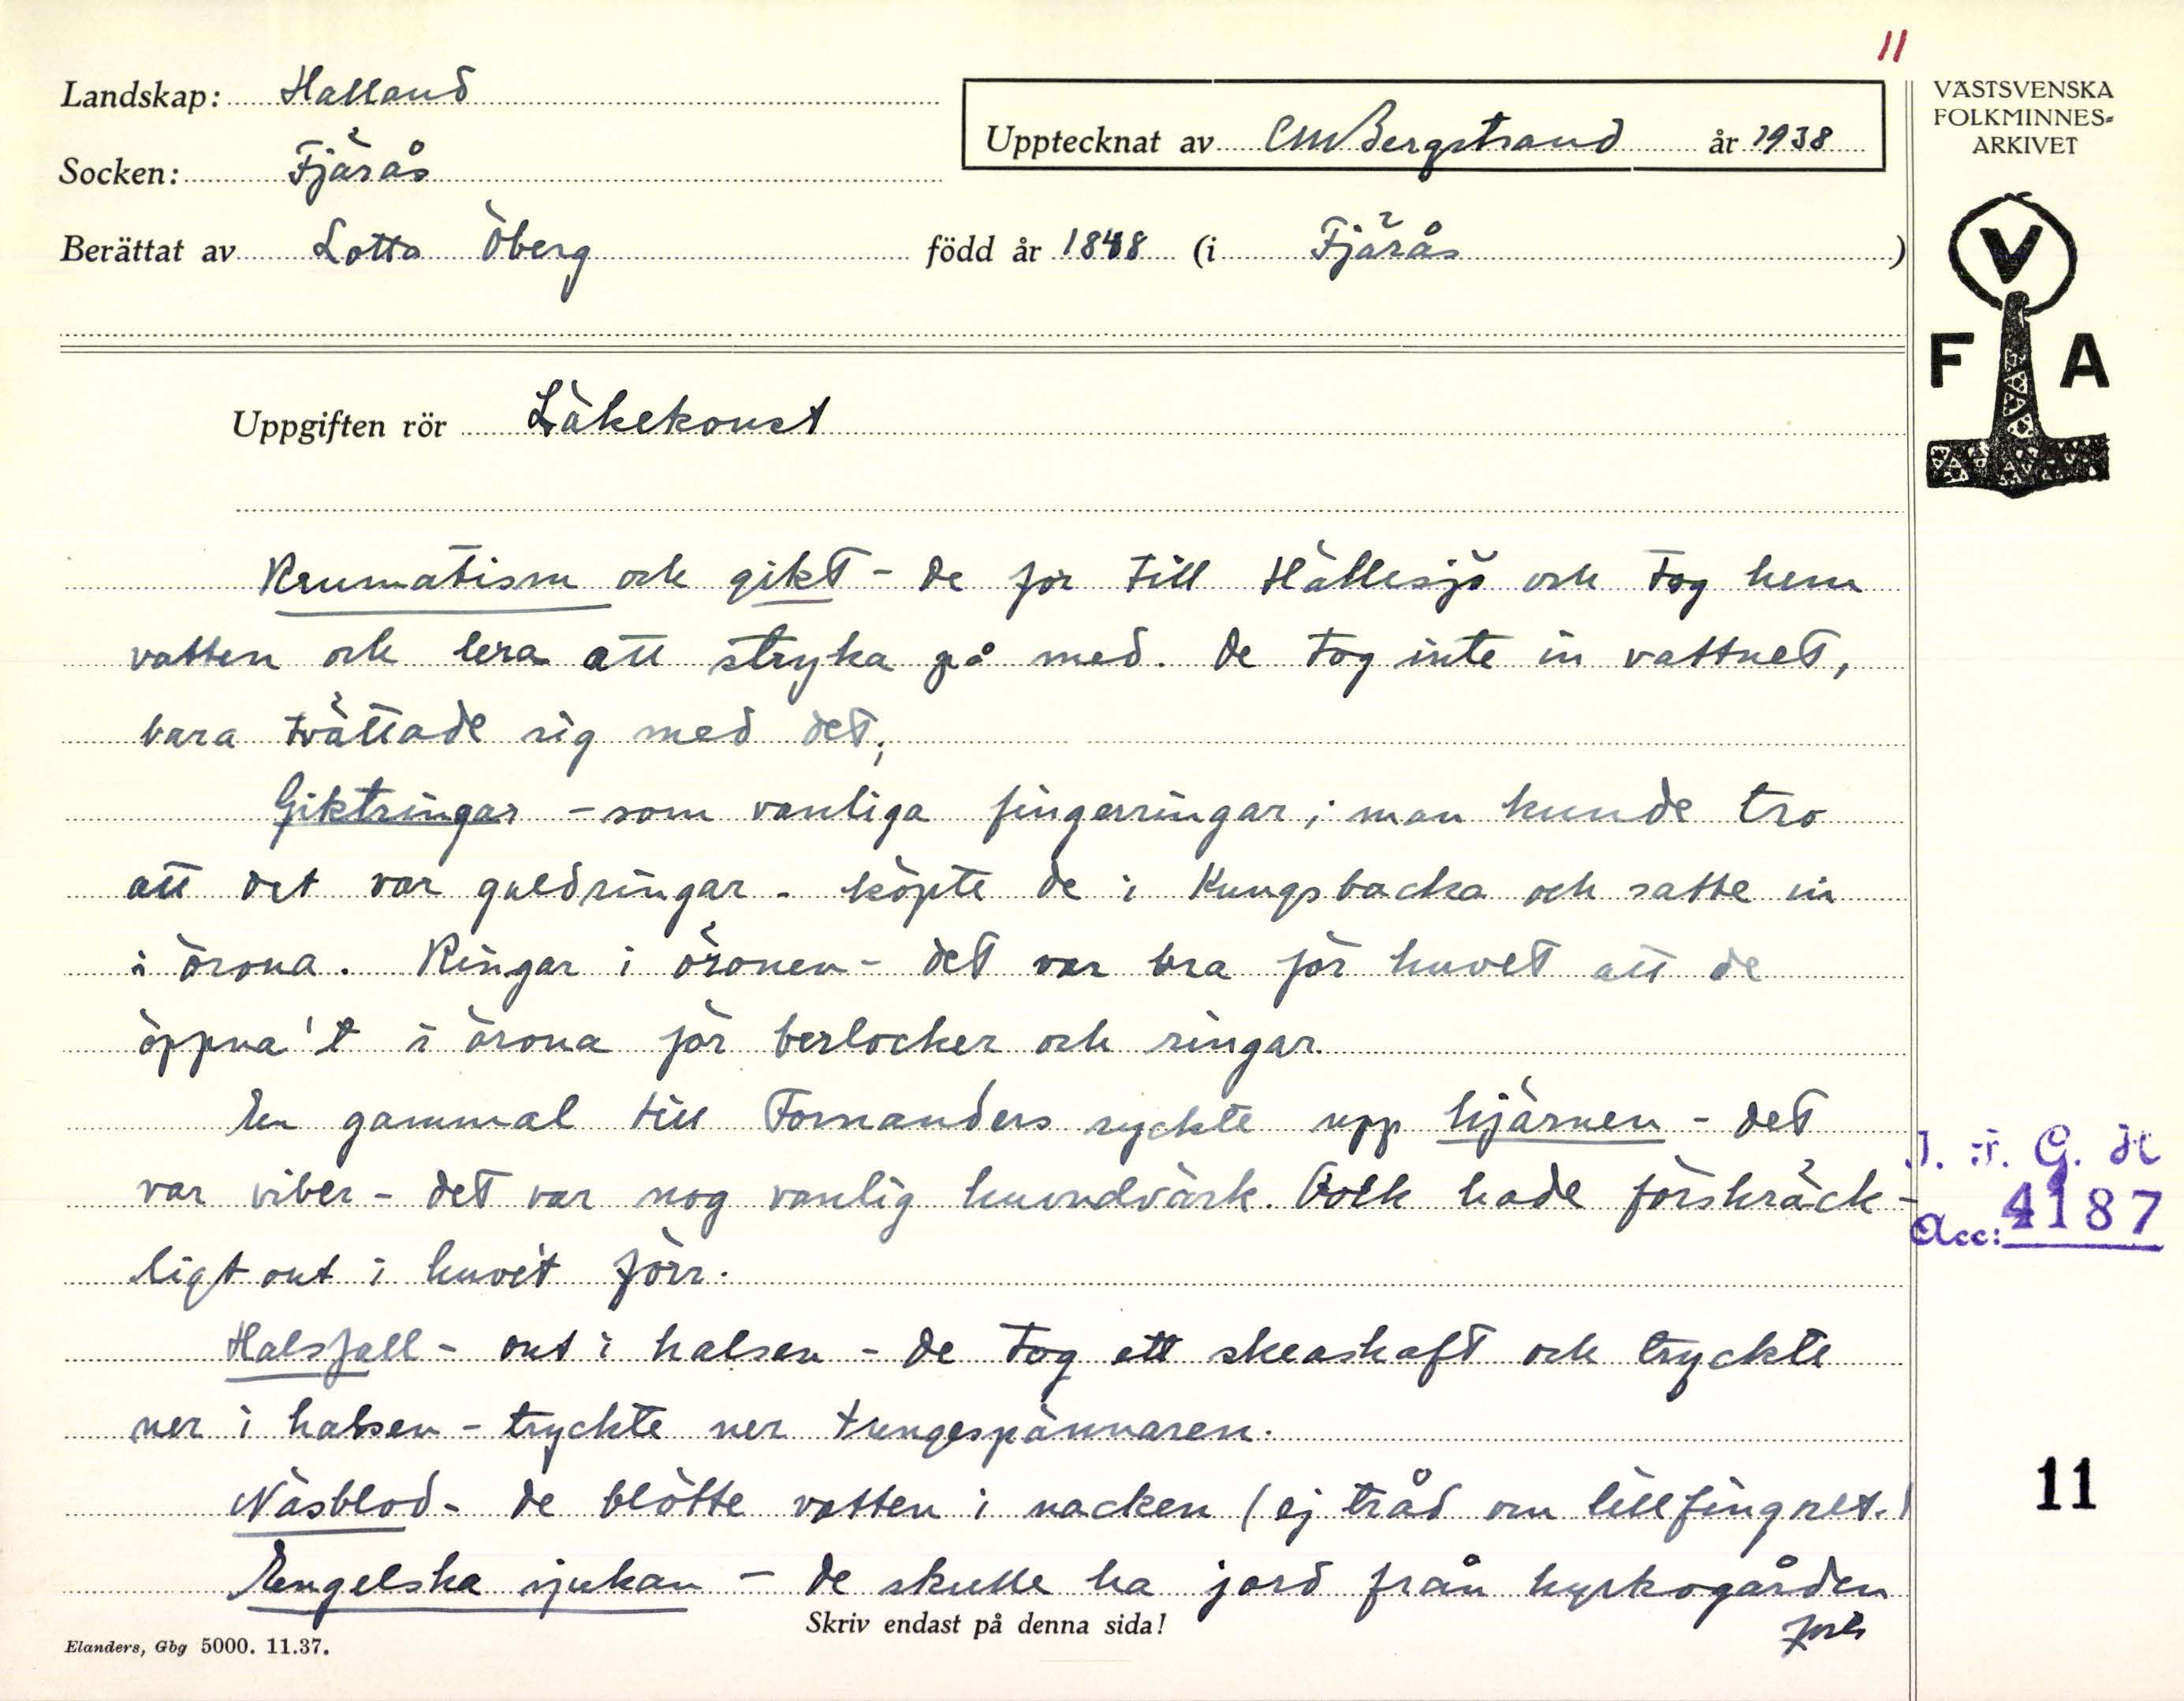 11
Landskap: Halland
Upptecknat av CMBergstrand år 1938
VÄSTSVENSKA
FOLKMINNES-
ARKIVET
Socken: Fjärås
Berättat av Lotta Öberg född år 1848 (i Fjärås )
V
F A
Uppgiften rör Läkekonst
Reumatism och gikt - de for till Hällesjö och tog hem
vatten och lera att stryka på med. De tog inte in vattnet,
bara tvättade sig med det.
Giktringar - som vanliga fingerringar; man kunde tro
att det var guldringar - köpte de i Kungsbacka och satte in
i örona. Ringar i öronen - det var bra för huvet att de
öppna't i örona för berlocker och ringar.
En gammal till Fornanders ryckte upp hjärnen - det
var viber - det var nog vanlig huvudvärk. Folk hade förskräck-
ligt ont i huvet förr.
Halsfall - ont i halsen - de tog ett skeaskaft och tryckte
ner i halsen - tryckte ner tungespännaren.
Näsblod - de blötte vatten i nacken (ej tråd om lillfingret.)
Engelska sjukan - de skulle ha jord från kyrkogården
Skriv endast på denna sida!
Elanders, Gbg 5000. 11.37.
I. F. G. H
Acc: 4187
11